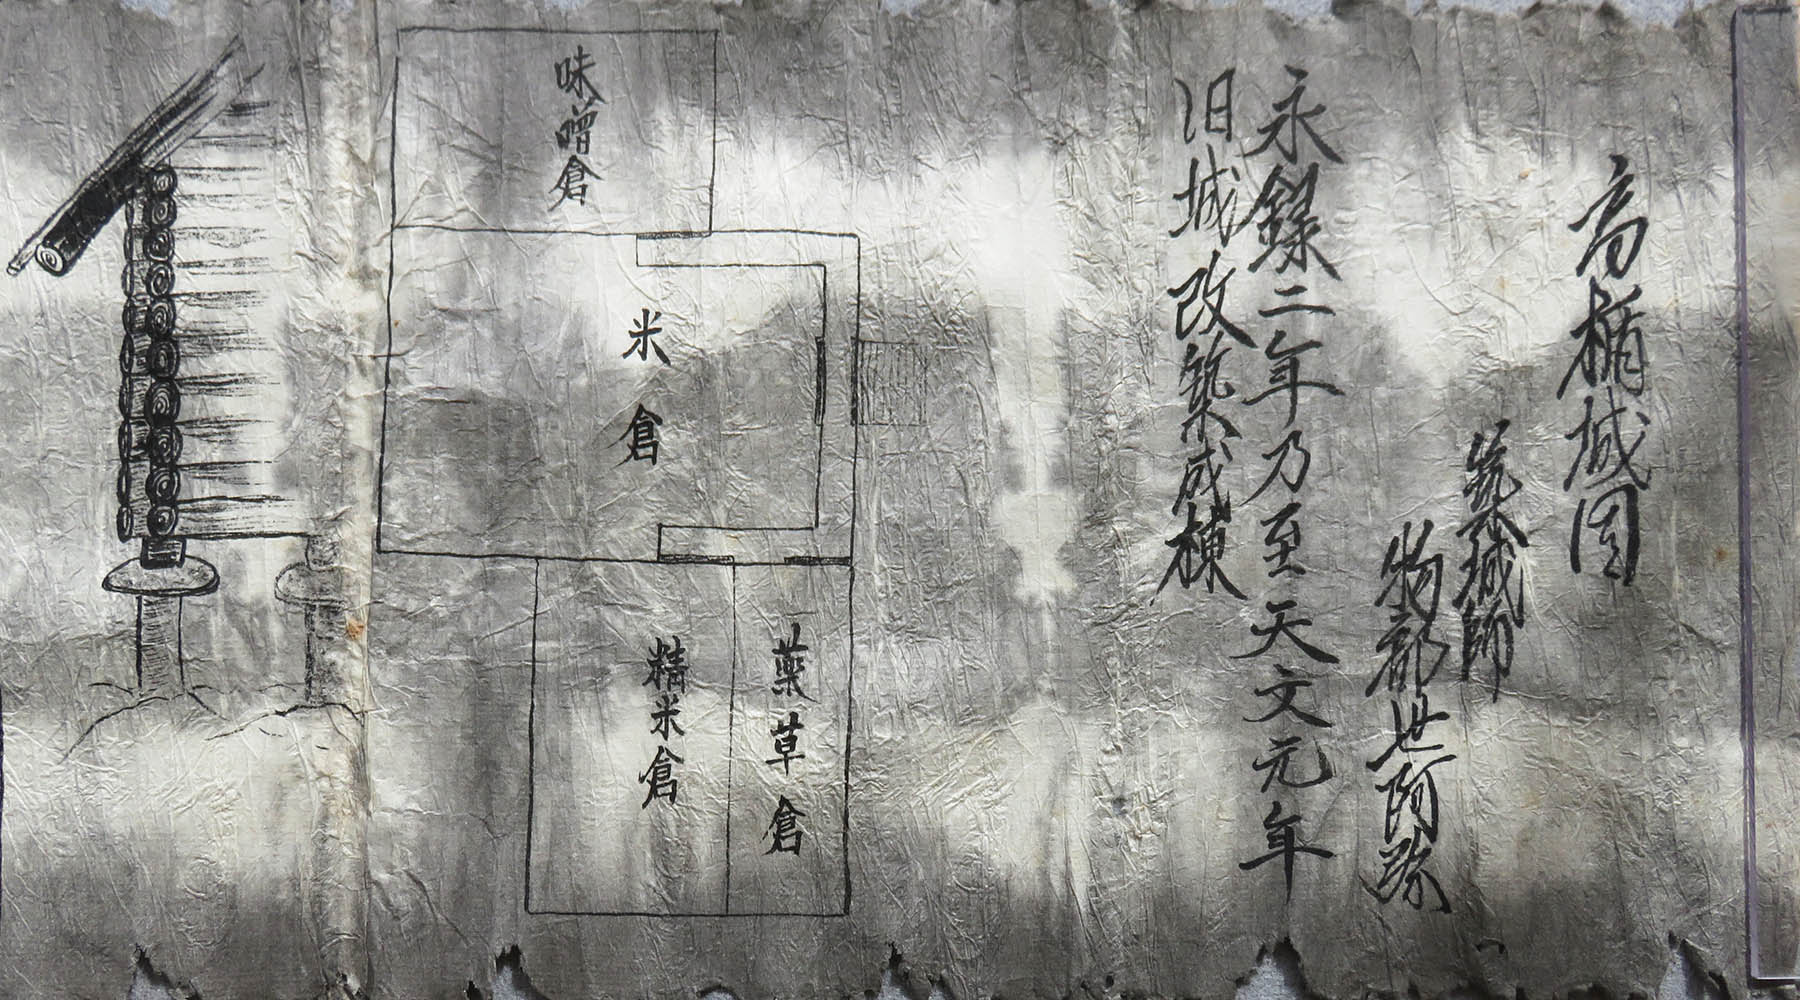 高楯城図
築城師
物部世阿弥
永録二年乃至天文元年
旧城改築成棟
味噌倉
米倉
薬草倉
精米倉